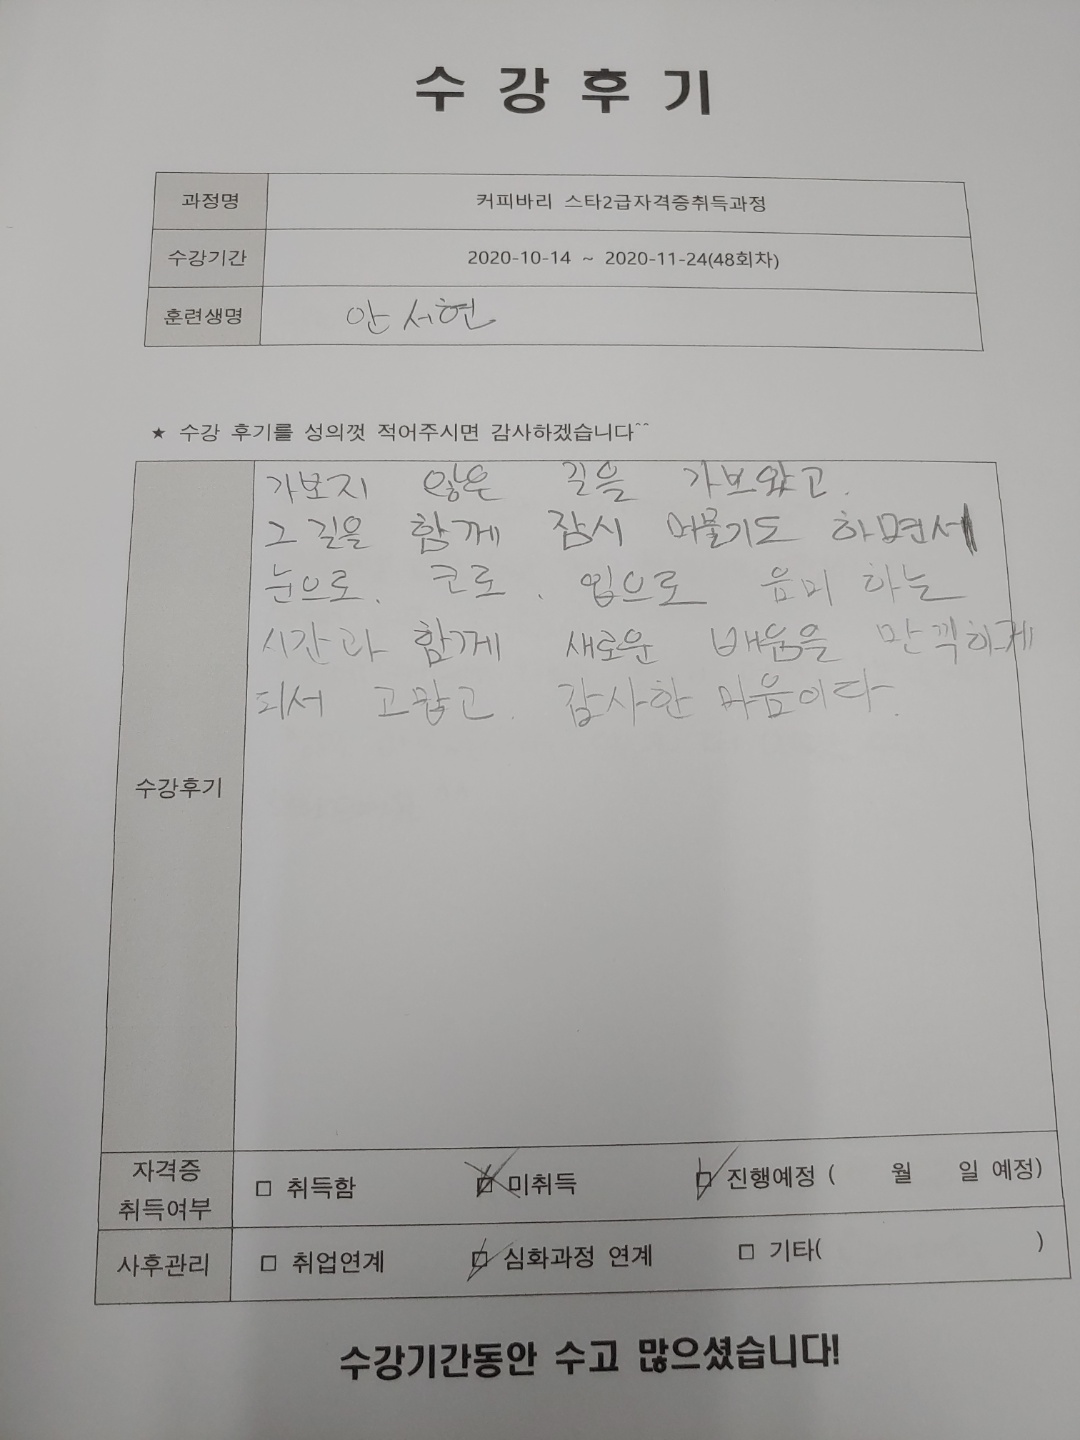 수 강 후 기
과정명 커피바리 스타2급자격증취득과정
수강기간 2020-10-14 ~ 2020-11-24(48회차)
훈련생명 안서현
★ 수강 후기를 성의껏 적어주시면 감사하겠습니다^^
가보지 않은 길을 가보았고.
그 길을 함께 잠시 머물기도 하면서
눈으로. 코로. 입으로 음미 하는
시간과 함께 새로운 배움을 만끽하게
되서 고맙고. 감사한 마음이다.
수강후기
자격증
취득여부
□ 취득함 □ 미취득 □ 진행예정 ( 월 일 예정)
사후관리 □ 취업연계 □ 심화과정 연계 □ 기타( )
수강기간동안 수고 많으셨습니다!